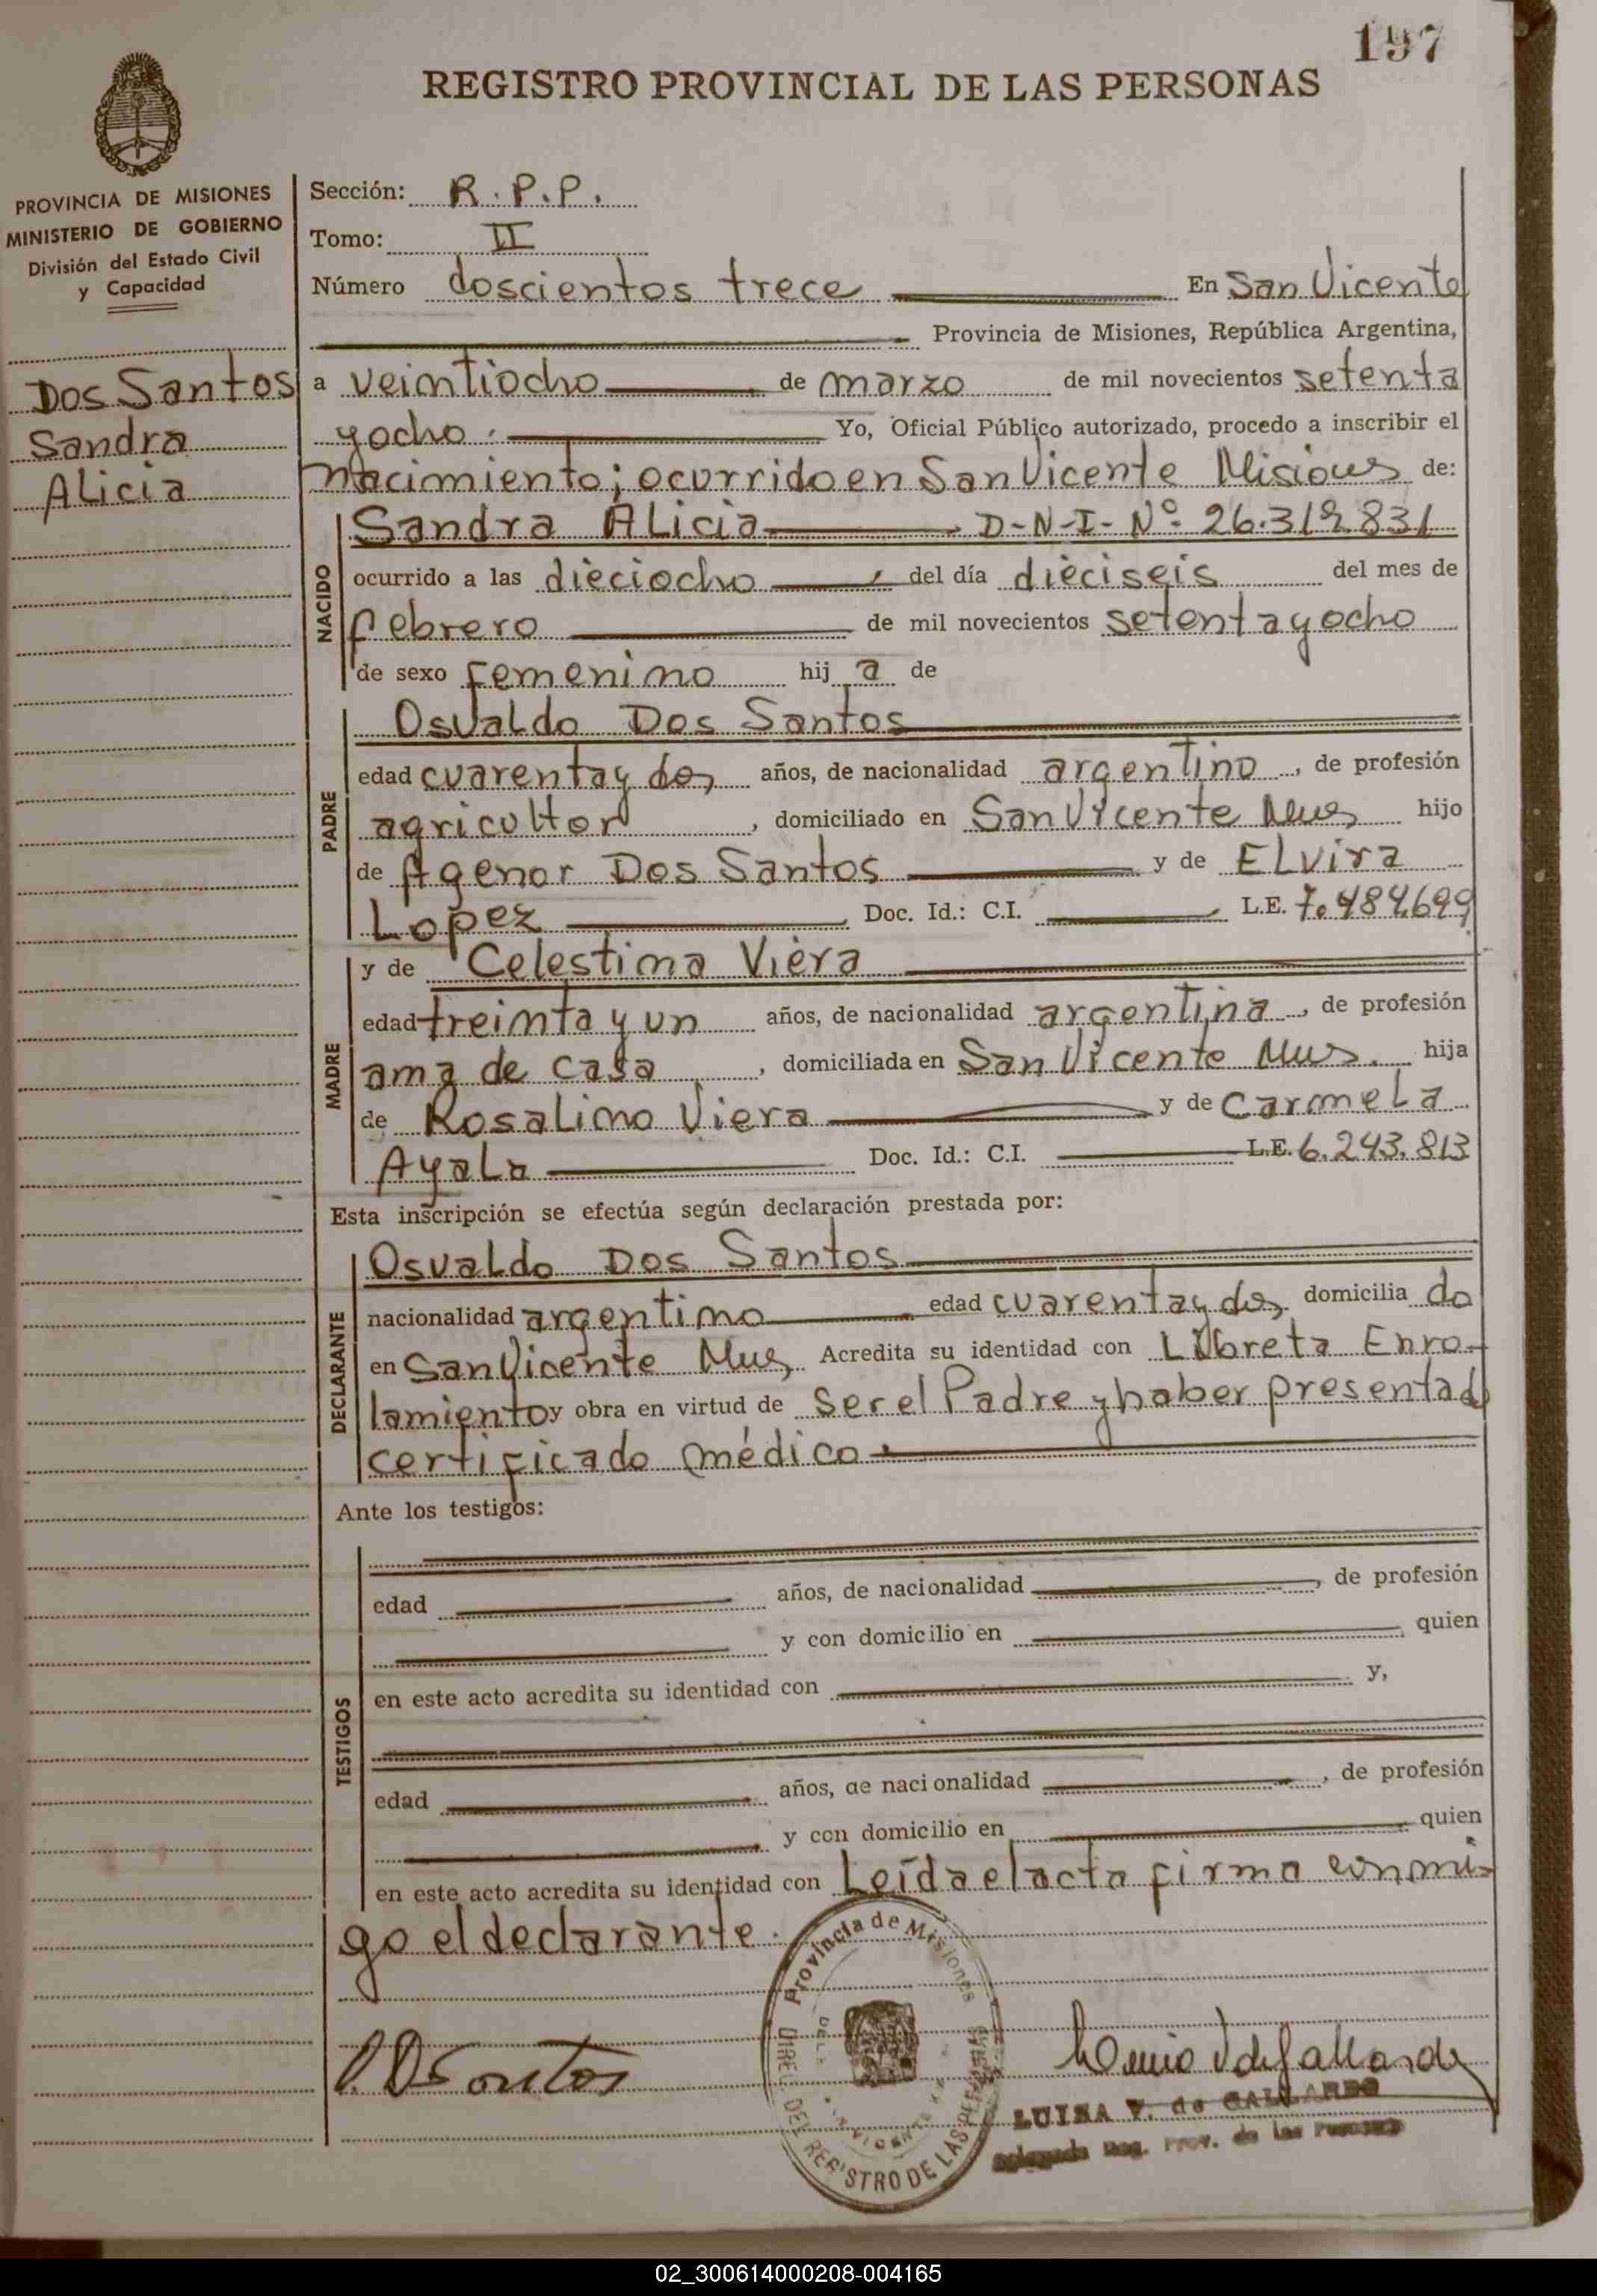 197
REGISTRO PROVINCIAL DE LAS PERSONAS
PROVINCIA DE MISIONES
MINISTERIO DE GOBIERNO
División del Estado Civil
y Capacidad
Dos Santos
Sandra
Alicia
Sección: R.P.P.
Tomo: II
Número doscientos trece En San Vicente
Provincia de Misiones, República Argentina,
a veintiocho de marzo de mil novecientos setenta
y ocho. Yo, Oficial Público autorizado, procedo a inscribir el
nacimiento; ocurrido en San Vicente Misiones de:
NACIDO
Sandra Alicia D-N-I- Nº 26.319.831
ocurrido a las dieciocho del día dieciseis del mes de
febrero de mil novecientos setenta y ocho
de sexo femenino hij a de
PADRE
Osvaldo Dos Santos
edad cuarenta y dos años, de nacionalidad argentino, de profesión
agricultor, domiciliado en San Vicente Mnes hijo
de Agenor Dos Santos y de Elvira
Lopez Doc. Id.: C.I. L.E. 7.484.699
MADRE
y de Celestina Viera
edad treinta y un años, de nacionalidad argentina, de profesión
ama de casa, domiciliada en San Vicente Mnes. hija
de Rosalino Viera y de Carmela
Ayala Doc. Id.: C.I. L.E. 6.243.813
Esta inscripción se efectúa según declaración prestada por:
DECLARANTE
Osvaldo Dos Santos
nacionalidad argentino edad cuarenta y dos domicilia do
en San Vicente Mnes Acredita su identidad con Libreta Enro-
lamiento y obra en virtud de ser el Padre y haber presentado
certificado médico
Ante los testigos:
TESTIGOS
edad años, de nacionalidad , de profesión
y con domicilio en quien
en este acto acredita su identidad con y,
edad años, de nacionalidad , de profesión
y con domicilio en quien
en este acto acredita su identidad con Leída el acta firma conmi-
go el declarante.
Provincia de Misiones
DIREC. DEL REGISTRO DE LAS PERSONAS
LUISA V. de GALLARDO
Delegada Reg. Prov. de las Personas
02_300614000208-004165